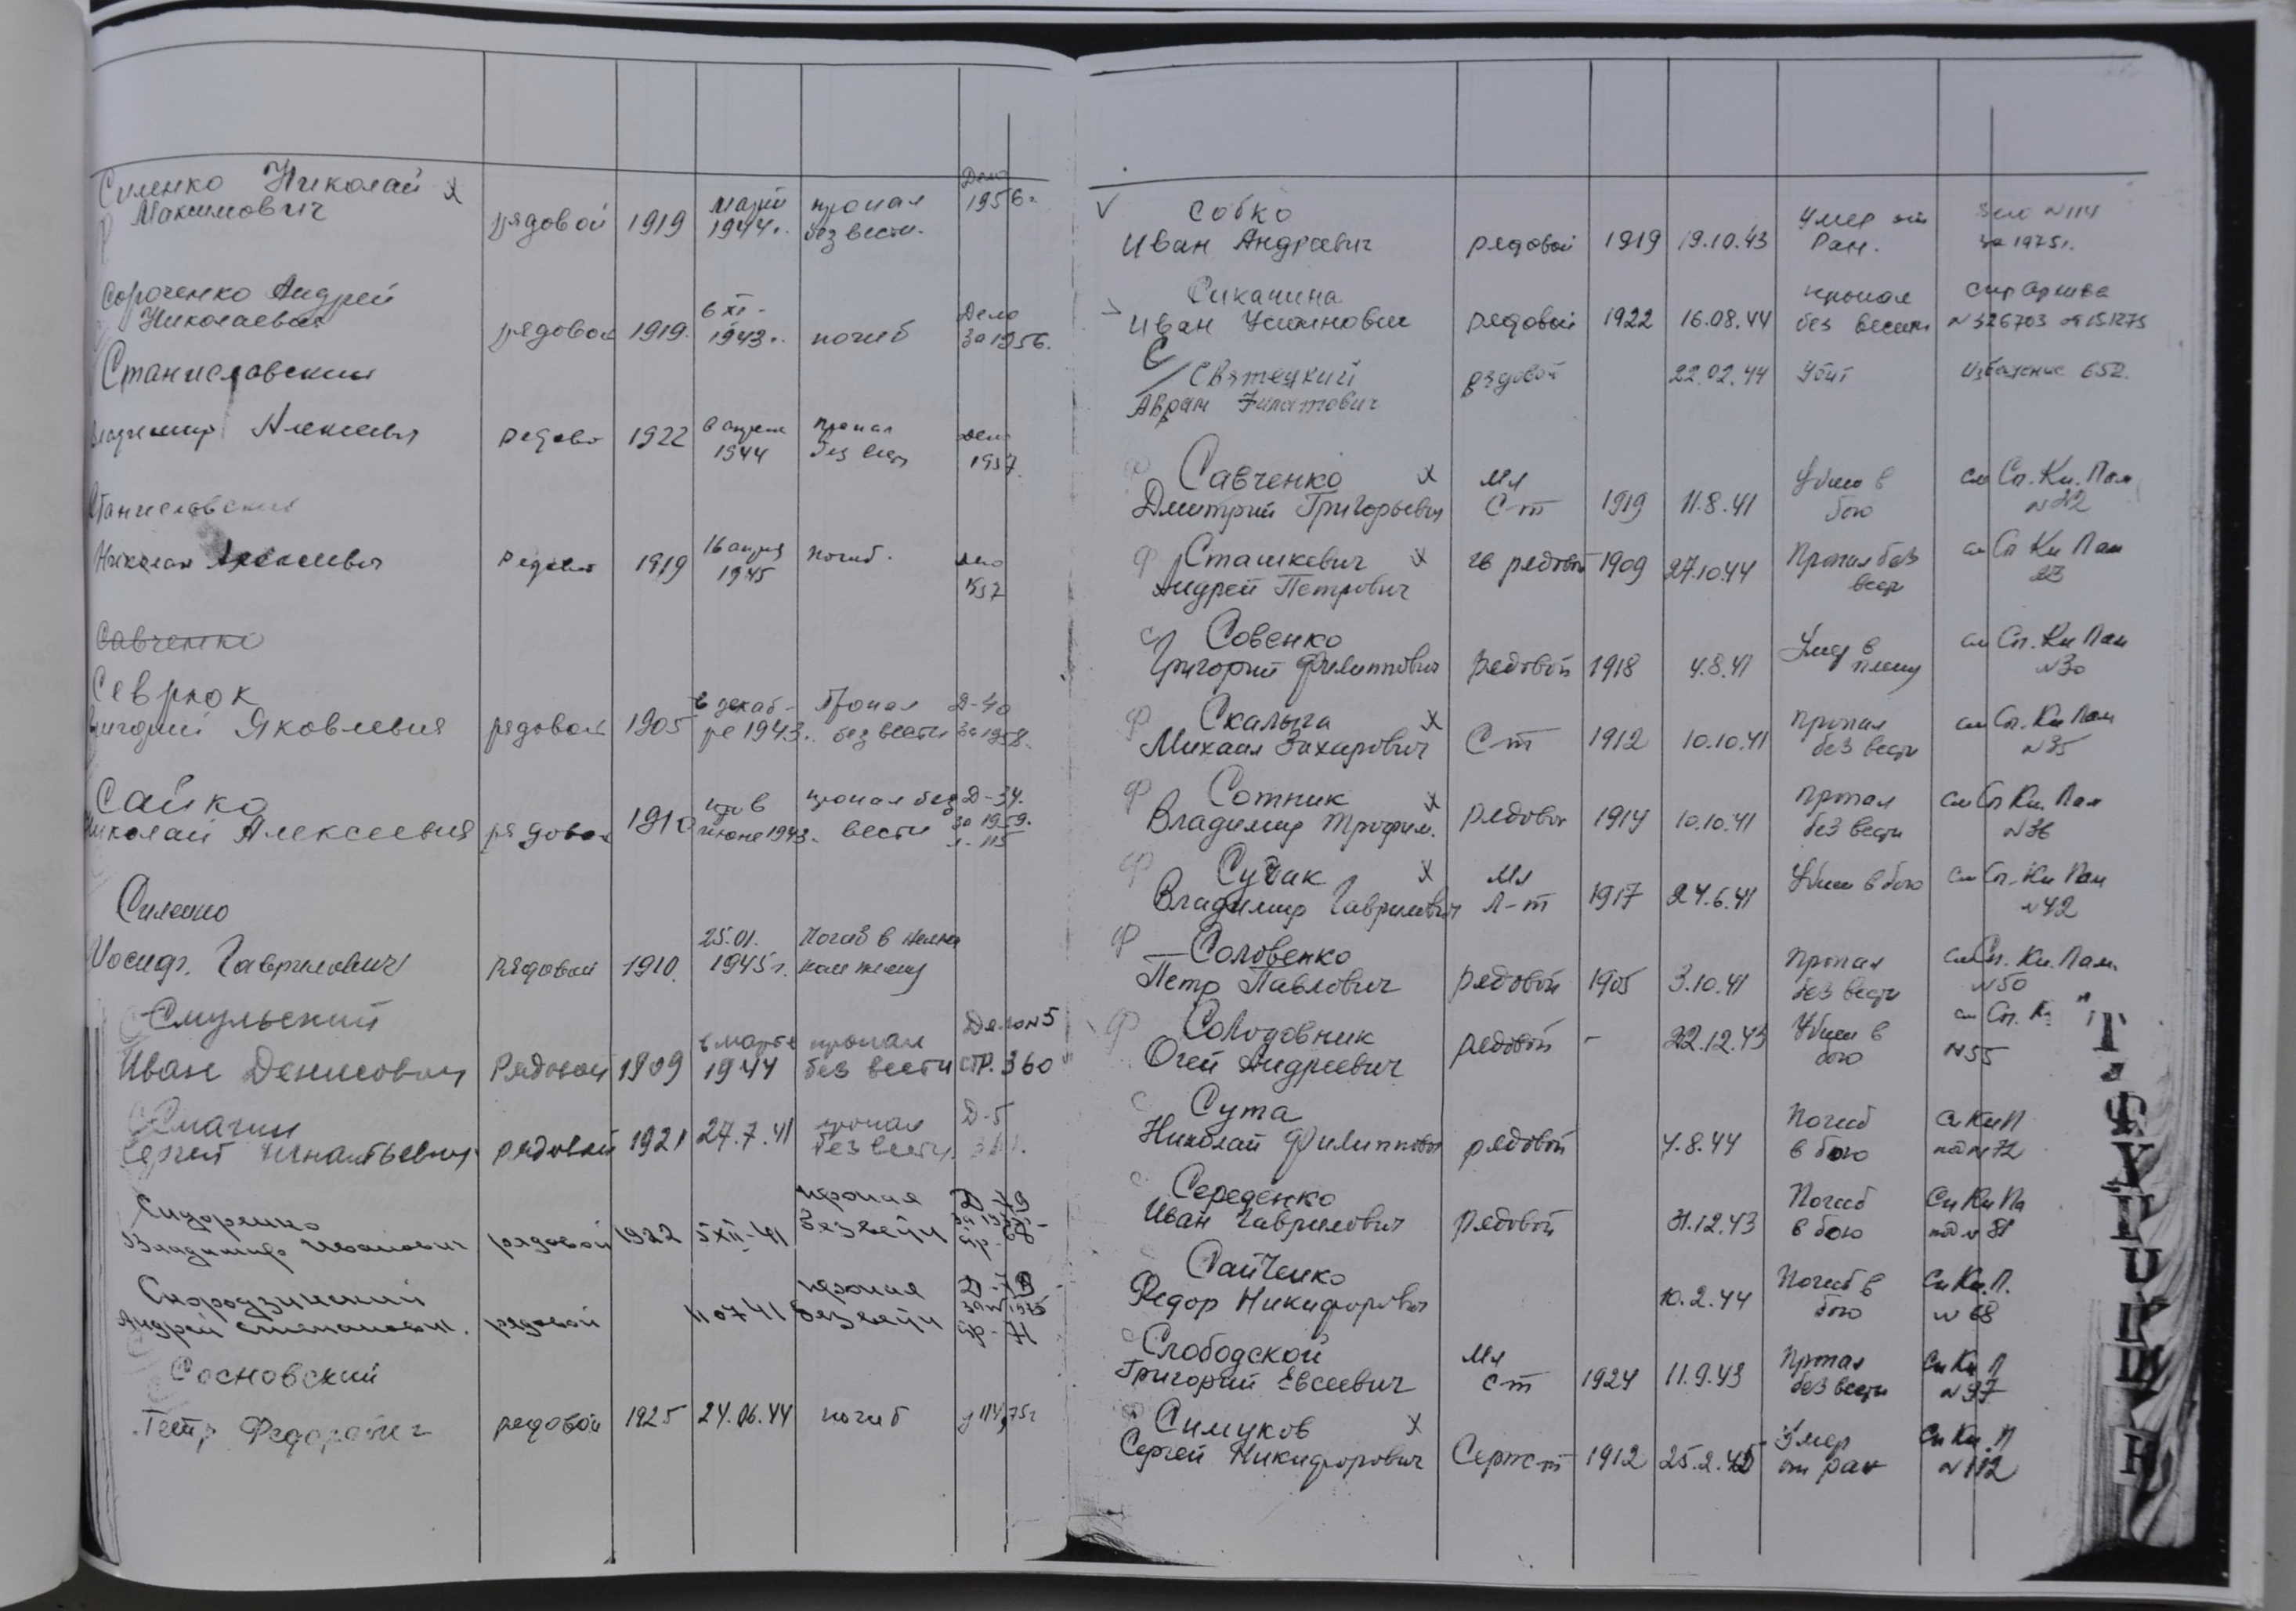 Силенко Николай х
Максимович
рядовой 1919 1944г. пропал без вести. Дело 1956г.
Сороченко Андрей
Николаевич
рядовой 1919. 6 XI - 1943г. погиб Дело за 1956.
Станиславский
Владимир Алексеевич рядово 1922 в апреле 1944 пропал без вести дело 1957.
Станиславский
Николай Алексеевич рядово 1919 16 апреля 1945 погиб. дело 1957
Савченко
Севрюк
Григорий Яковлевич рядовой 1905 в декаб-ре 1943г. Пропал без вести Д-40 за 1958.
Сайко
Николай Алексеевич рядовой 1910 июне 1943. пропал без вести Д-34. за 1959. л. 115
Силенко
Иосиф. Гаврилович рядовой 1910. 25.01. 1945г. Погиб в
Смульский
Иван Денисович Рядовой 1909 в марте 1944 пропал без вести Дело N5 стр. 360
Смагин
Сергей Игнатьевич рядовой 1921 27.7.41 пропал без вести. Д-5
Сидоренко
Владимир Иванович рядовой 1922 5 XII-41 пропал без вести
Скородзинский
Андрей Степанович. рядовой 11 07 41 пропал без вести стр-71
Сосновский
Петр Федорович рядовой 1925 24.06.44 погиб
Собко
Иван Андреевич рядовой 1919 19.10.43 Умер от Ран. Дело N114 за 1975г.
Сикачина
Иван рядовой 1922 16.08.44 пропал без вести N326703
С
Святецкий
Абрам рядовой 22.02.44 Убит Извещение 652.
Савченко х
Дмитрий Григорьевич Мл С-т 1919 11.8.41 Убит в бою см Сп. Кн. Пам
Сташкевич х
Андрей Петрович гв рядовой 1909 27.10.44 Пропал без вести см Сп Кн Пам 23
Совенко
Григорий Филиппович рядовой 1918 4.8.41 Умер в плену см Сп. Кн Пам N30
Скалыга х
Михаил Захарович С-т 1912 10.10.41 пропал без вести см Сп. Кн Пам N35
Сотник х
Владимир Трофим. рядовой 1914 10.10.41 пропал без вести см Сп Кн. Пам N36
Сучак х
Владимир Гаврилович Мл Л-т 1917 24.6.41 Убит в бою см Сп. Кн Пам N42
Соловенко
Петр Павлович рядовой 1905 3.10.41 Пропал без вести см Сп. Кн. Пам. N50
Солодовник
Огей Андреевич рядовой - 22.12.43 Убит в бою см Сп. К N55
Сута
Николай Филиппович рядовой 7.8.44 Погиб в бою Сп Кн П под N72
Середенко
Иван Гаврилович рядовой 31.12.43 Погиб в бою Сп Кн Па под N 81
Сайченко
Федор Никифорович 10.2.44 Погиб в бою Сп Кн. П. N 68
Слободской
Григорий Евсеевич Мл с-т 1924 11.9.43 Пропал без вести Сп Кн П N97
Симуков х
Сергей Никифорович Серж-т 1912 25.2.45 Умер от ран Сп Кн. П N112
Т
У
Х
Ц
Ш
Н